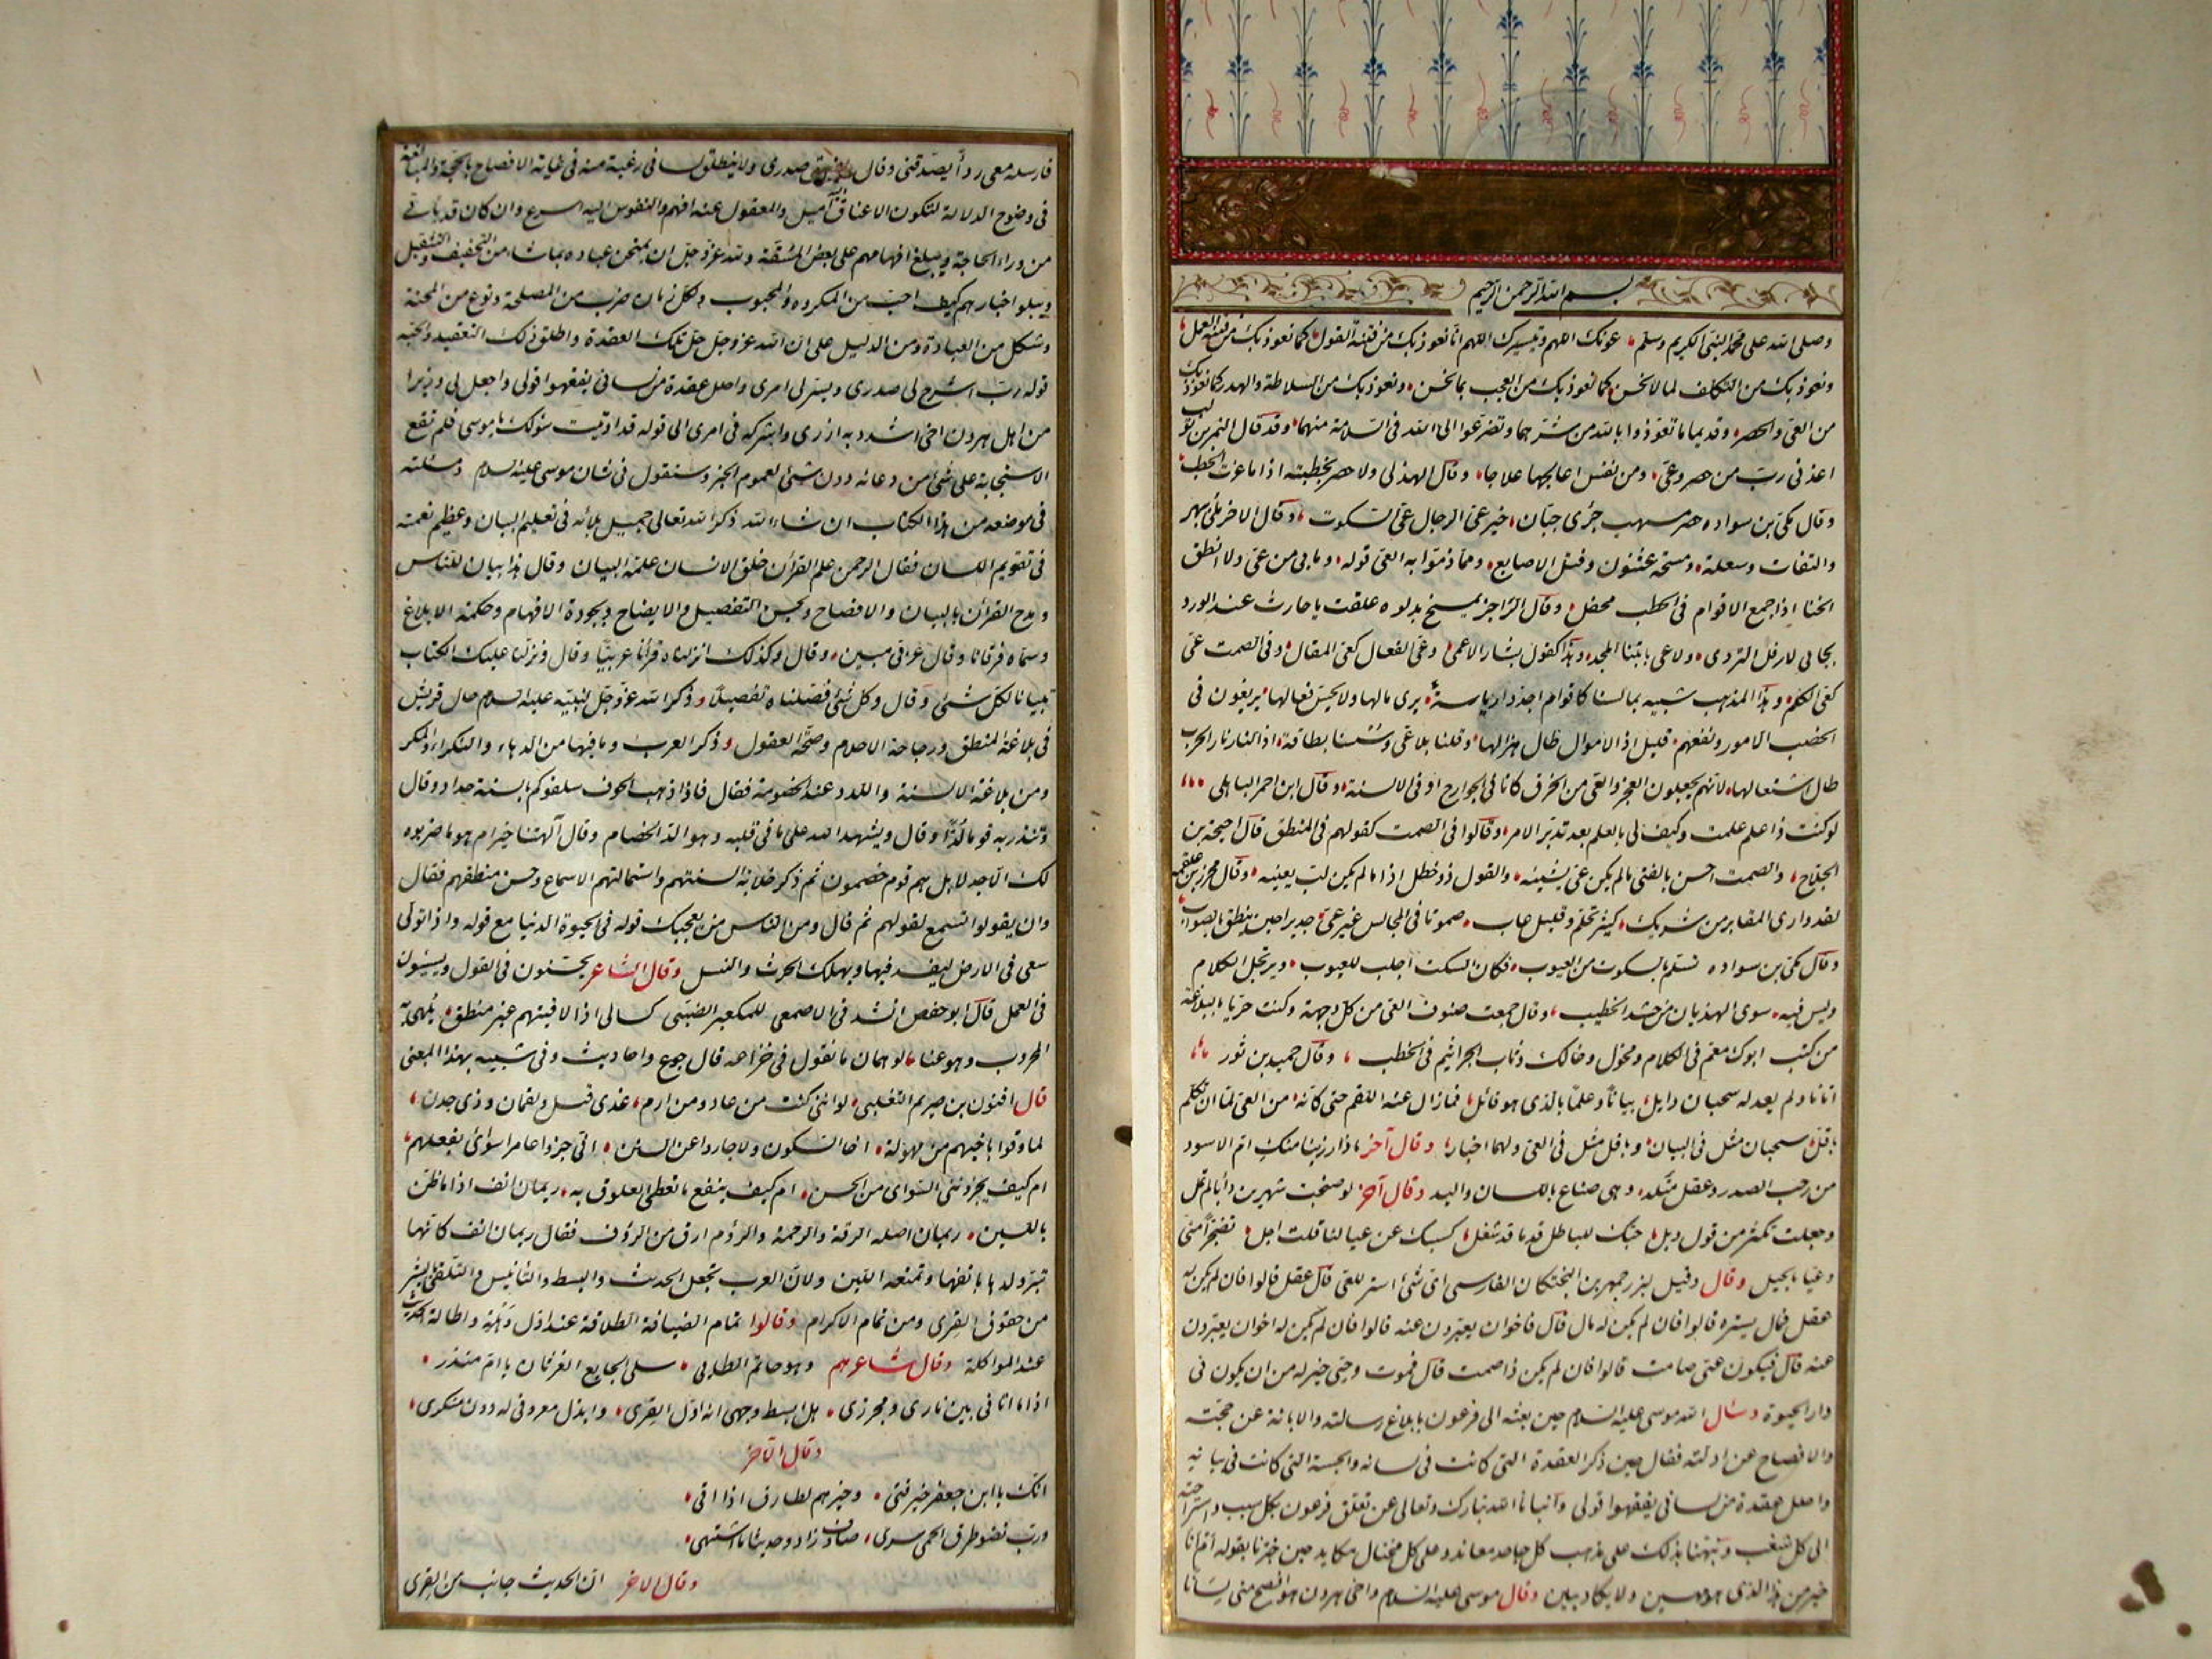 بسم الله الرحمن الرحيم
وصلى الله على محمد النبى الكريم وسلم عونك اللهم وتيسيرك اللهم انا نعوذ بك من فتنة القول كما نعوذ بك من فتنة العمل
ونعوذ بك من التكلف لما لا نحسن كما نعوذ بك من العجب بما نحسن ونعوذ بك من السلاطة والهذر كما نعوذ بك
من العى والحصر وقديما ما تعوذوا بالله من شرهما وتضرعوا الى الله فى السلامة منهما وقد قال النمر بن تولب
اعذنى رب من حصر وعى ومن نفس اعالجها علاجا وقال الهذلى ولا حصر بخطبته اذا ما عزت الخطب
وقال مكى بن سواده حصر مسهب جرى جبان خير عى الرجال عى السكوت وقال الاخر ملئ ببهر
والتفات وسعلة ومسحة عثنون وفتل الاصابع ومما ذموا به العى قوله وما بى من عى ولا انطق
الخنا اذا جمع الاقوام فى الخطب محفل وقال الراجز يمسح بدلوه علقت يا حارث عند الورد
بجابى لا رفل التردى ولا عى بابتنا المجد وهذا كقول بشار الاعمى وعى الفعال كعى المقال وفى الصمت عى
كعى الكلم وهذا المذهب شبيه بما
الخصب الامور ونفعهم قليل اذ الاموال طال هزالها وقلنا بلا عى وسسنا بطاقة اذ النار نار الحرب
طال اشتعالها لانهم يجعلون العجز والعى من الخرق كانا فى الجوارح او فى الالسنة وقال ابن احمر الباهلى
لو كنت ذا علم علمت وكيف لى بالعلم بعد تدبر الامر وقالوا فى الصمت كقولهم فى المنطق قال احيحة بن
الجلاح والصمت احسن بالفتى ما لم يكن عى يشينه والقول ذو خطل اذا ما لم يكن لب يعينه وقال محرز بن علقمة
لقد وارى المقابر من شريك كثير تحلم وقليل عاب صموتا فى المجالس غير عى جديرا حين ينطق بالصواب
وقال مكى بن سواده تسلم بالسكوت من العيوب فكان السكت اجلب للعيوب ويرتجل الكلام
وليس فيه سوى الهذيان من حشد الخطيب وقال جمعت صنوف العى من كل وجهة وكنت حريا بالبلاغة
من كثب ابوك معم فى الكلام ومخول وخالك وثاب الجراثيم فى الخطب وقال حميد بن ثور
اتانا ولم يعدله سحبان وايل بيانا وعلما بالذى هو قائل فما زال عنه اللقم حتى كانه من العى لما ان تكلم
باقل سحبان مثل فى البيان وباقل مثل فى العى ولهما اخبار وقال آخر ماذا رزينا منك ام الاسود
من رحب الصدر وعقل متلد وهى صناع باللسان واليد وقال آخر لو صخبت شهرين دأبا لم تمل
وجعلت تكثر من قول وبل حبك للباطل قدما قد شغل كسبك عن عيالنا قلت اجل تضجرا منى
وعيا بالحيل وقال وقيل لبزرجمهر بن البختكان الفارسى اى شئ استر للعى قال عقل قالوا فان لم يكن له
عقل فمال يستره قالوا فان لم يكن له مال قال فاخوان يعبرون عنه قالوا فان لم يكن له اخوان يعبرون
عنه قال فيكون عى صامت قالوا فان لم يكن ذا صمت قال فموت وحى خير له من ان يكون فى
دار الحيوة وسأل الله موسى عليه السلام حين بعثه الى فرعون بابلاغ رسالته والابانة عن حجته
والافصاح عن ادلته فقال حين ذكر العقدة التى كانت فى لسانه والحبسة التى كانت فى بيانه
واحلل عقدة من لسانى يفقهوا قولى وانبانا الله تبارك وتعالى عن تعلق فرعون بكل سبب واستراحته
الى كل شغب ونبهنا بذلك على مذهب كل جاحد معاند وعلى كل مختال مكايد حين خبرنا بقوله ام انا
خير من هذا الذى هو مهين ولا يكاد يبين وقال موسى عليه السلام واخى هرون هو افصح منى لسانا
فارسله معى ردأ يصدقنى وقال ويضيق صدرى ولا ينطلق لسانى رغبة منه فى غاية الافصاح بالحجة والمبالغة
فى وضوح الدلالة لتكون الاعناق اليه اميل والمعقول عنه افهم والنفوس اليه اسرع وان كان قد ياتى
من وراء الحاجة ويبلغ افهامهم على بعض المشقة ولله عز وجل ان يمتحن عباده بما شاء من التخفيف والتثقيل
ويبلو اخبارهم كيف احب من المكروه والمحبوب ولكل زمان ضرب من المصلحة ونوع من المحنة
وشكل من العبادة ومن الدليل على ان الله عز وجل حل تلك العقدة واطلق ذلك التعقيد والحبسة
قوله رب اشرح لى صدرى ويسر لى امرى واحلل عقدة من لسانى يفقهوا قولى واجعل لى وزيرا
من اهلى هرون اخى اشدد به ازرى واشركه فى امرى الى قوله قد اوتيت سؤلك يا موسى فلم تقع
الاستجابة على شئ من دعائه دون شئ لعموم الخبر وسنقول فى شان موسى عليه السلام ومسئلته
فى موضعه من هذا الكتاب ان شاء الله ذكر الله تعالى جميل بلائه فى تعليم البيان وعظيم نعمته
فى تقويم اللسان فقال الرحمن علم القرآن خلق الانسان علمه البيان وقال هذا بيان للناس
ومدح القرآن بالبيان والافصاح وبحسن التفصيل والايضاح وبجودة الافهام وحكمة الابلاغ
وسماه فرقانا وقال عربى مبين وقال وكذلك انزلناه قرآنا عربيا وقال ونزلنا عليك الكتاب
تبيانا لكل شئ وقال وكل شئ فصلناه تفصيلا وذكر الله عز وجل لنبيه عليه السلام حال قريش
فى بلاغة المنطق ورجاحة الاحلام وصحة العقول وذكر العرب وما فيها من الدهاء والنكراء والمكر
ومن بلاغة الالسنة واللدد عند الخصومة فقال فاذا ذهب الخوف سلقوكم بالسنة حداد وقال
وتنذر به قوما لدا وقال ويشهد الله على ما فى قلبه وهو الد الخصام وقال آلهتنا خير ام هو ما ضربوه
لك الا جدلا بل هم قوم خصمون ثم ذكر خلابة السنتهم واستمالتهم الاسماع وحسن منطقهم فقال
وان يقولوا تسمع لقولهم ثم قال ومن الناس من يعجبك قوله فى الحيوة الدنيا مع قوله واذا تولى
سعى فى الارض ليفسد فيها ويهلك الحرث والنسل وقال الشاعر يحسنون فى القول ويسيئون
فى العمل قال ابو حفص انشدنى الاصمعى للمكعبر الضبى كسالى اذا لاقيتهم غير منطق يلهى به
المحروب وهو عنا لوهمان ما نقول فى خزاعه قال جوع واحاديث وفى شبيه بهذا المعنى
قال افنون بن صريم التغلبى لو اننى كنت من عاد ومن ارم غذى قيل ولقمان وذى جدن
لما وقوا باخيهم من مهولة اخا السكون ولا جاروا عن السنن انى جزوا عامرا سوأى بفعلهم
ام كيف يجزوننى السوأى من الحسن ام كيف ينفع ما تعطى العلوق به ريمان انف اذا ما ظن
باللبن ريمان اصله الرقة والرحمة والرؤم ارق من الرؤف فقال ريمان انف كانها
تبر ولدها بانفها وتمنعه اللبن ولان العرب تجعل الحديث والبسط والتانيس والتلقى بالبشر
من حقوق القرى ومن تمام الاكرام وقالوا تمام الضيافة الطلاقة عند اول وهلة واطالة الحديث
عند المواكلة وقال شاعرهم وهو حاتم الطائى سلى الجايع الغرثان يا ام منذر
اذا ما اتانى بين نارى ومجزرى هل ابسط وجهى انه اول القرى وابذل معروفى له دون منكرى
وقال الآخر
انك يا ابن جعفر خير فتى وخيرهم لطارق اذا اتى
ورب نضو طرق الحى سرى صادف زادا وحديثا ما اشتهى
وقال الاخر ان الحديث جانب من القرى